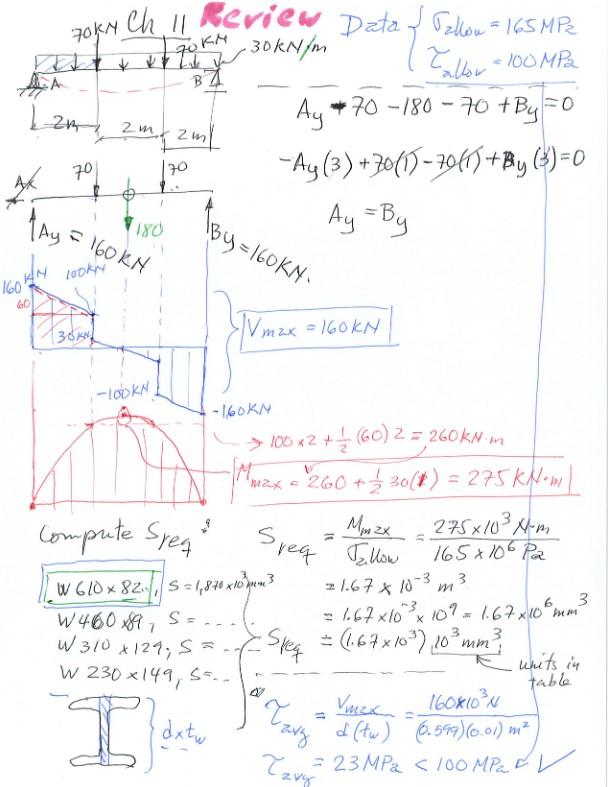 Ch 11 Review
Data { σallow = 165 MPa
τallow = 100 MPa
70KN 70KN 30KN/m
A B
2m 2m 2m
Ay - 70 - 180 - 70 + By = 0
-Ay(3) + 70(1) - 70(1) + By(3) = 0
Ay = By
70 70
Ax
180
Ay = 160KN By = 160KN.
160KN 100KN
60
30KN
Vmax = 160KN
-100KN
-160KN
→ 100 x 2 + 1/2 (60) 2 = 260KN·m
Mmax = 260 + 1/2 30(1) = 275KN·m
Compute Sreq:
Sreq = Mmax / σallow = 275x10³ N·m / 165 x 10⁶ Pa
W 610 x 82.., S = 1,870x10³ mm³
= 1.67 x 10⁻³ m³
W 460 x 89, S = ....
= 1.67x10⁻³ x 10⁹ = 1.67x10⁶ mm³
W 310 x 129, S = ....
Sreq = (1.67x10³) 10³ mm³
W 230 x 149, S = ..
units in table
d x tw
τavg = Vmax / d(tw) = 160x10³ N / (0.599)(0.01) m²
τavg = 23 MPa < 100 MPa ✓